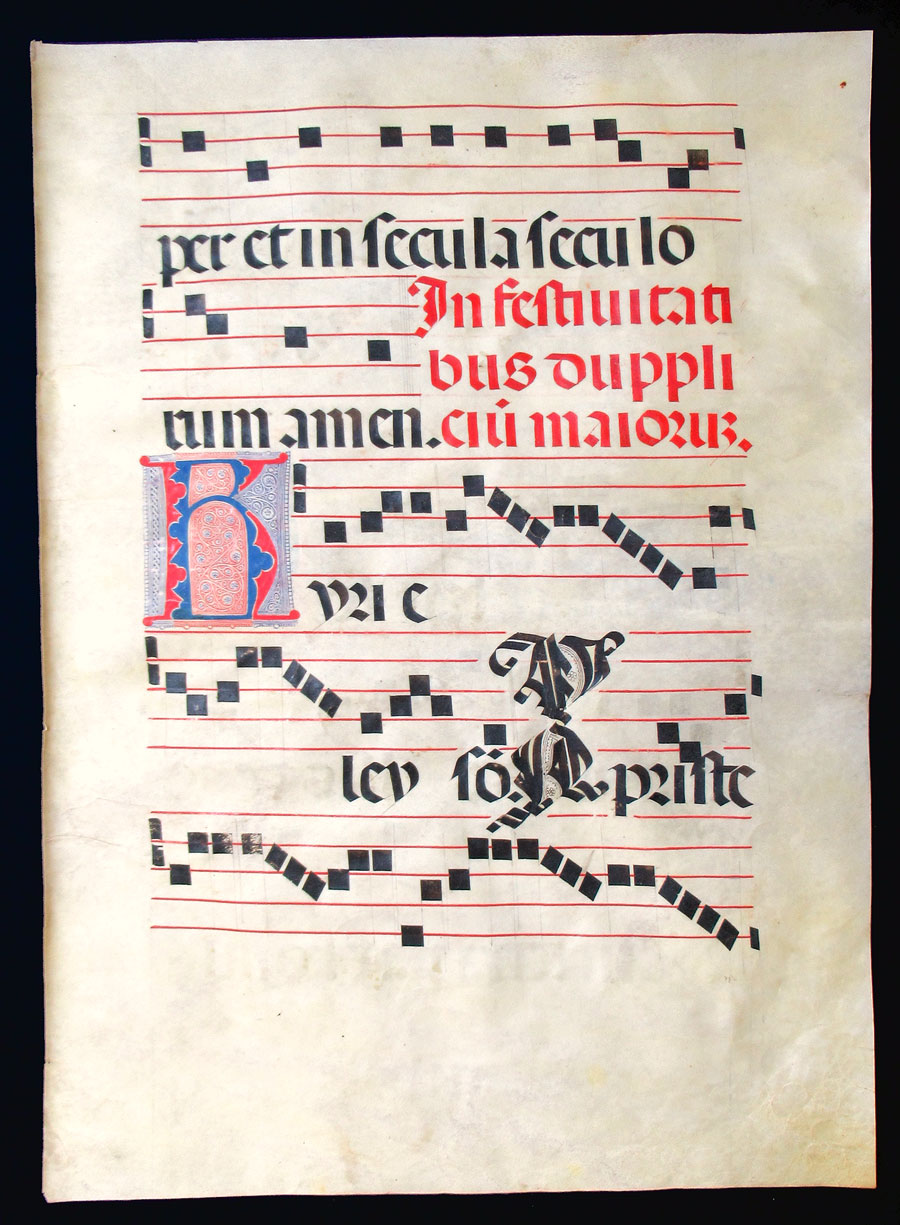 per et in secula seculo
In festiuitati
bus duppli
rum amen. ciū maioruꝫ.
Kyrie
ley sō Xpriste